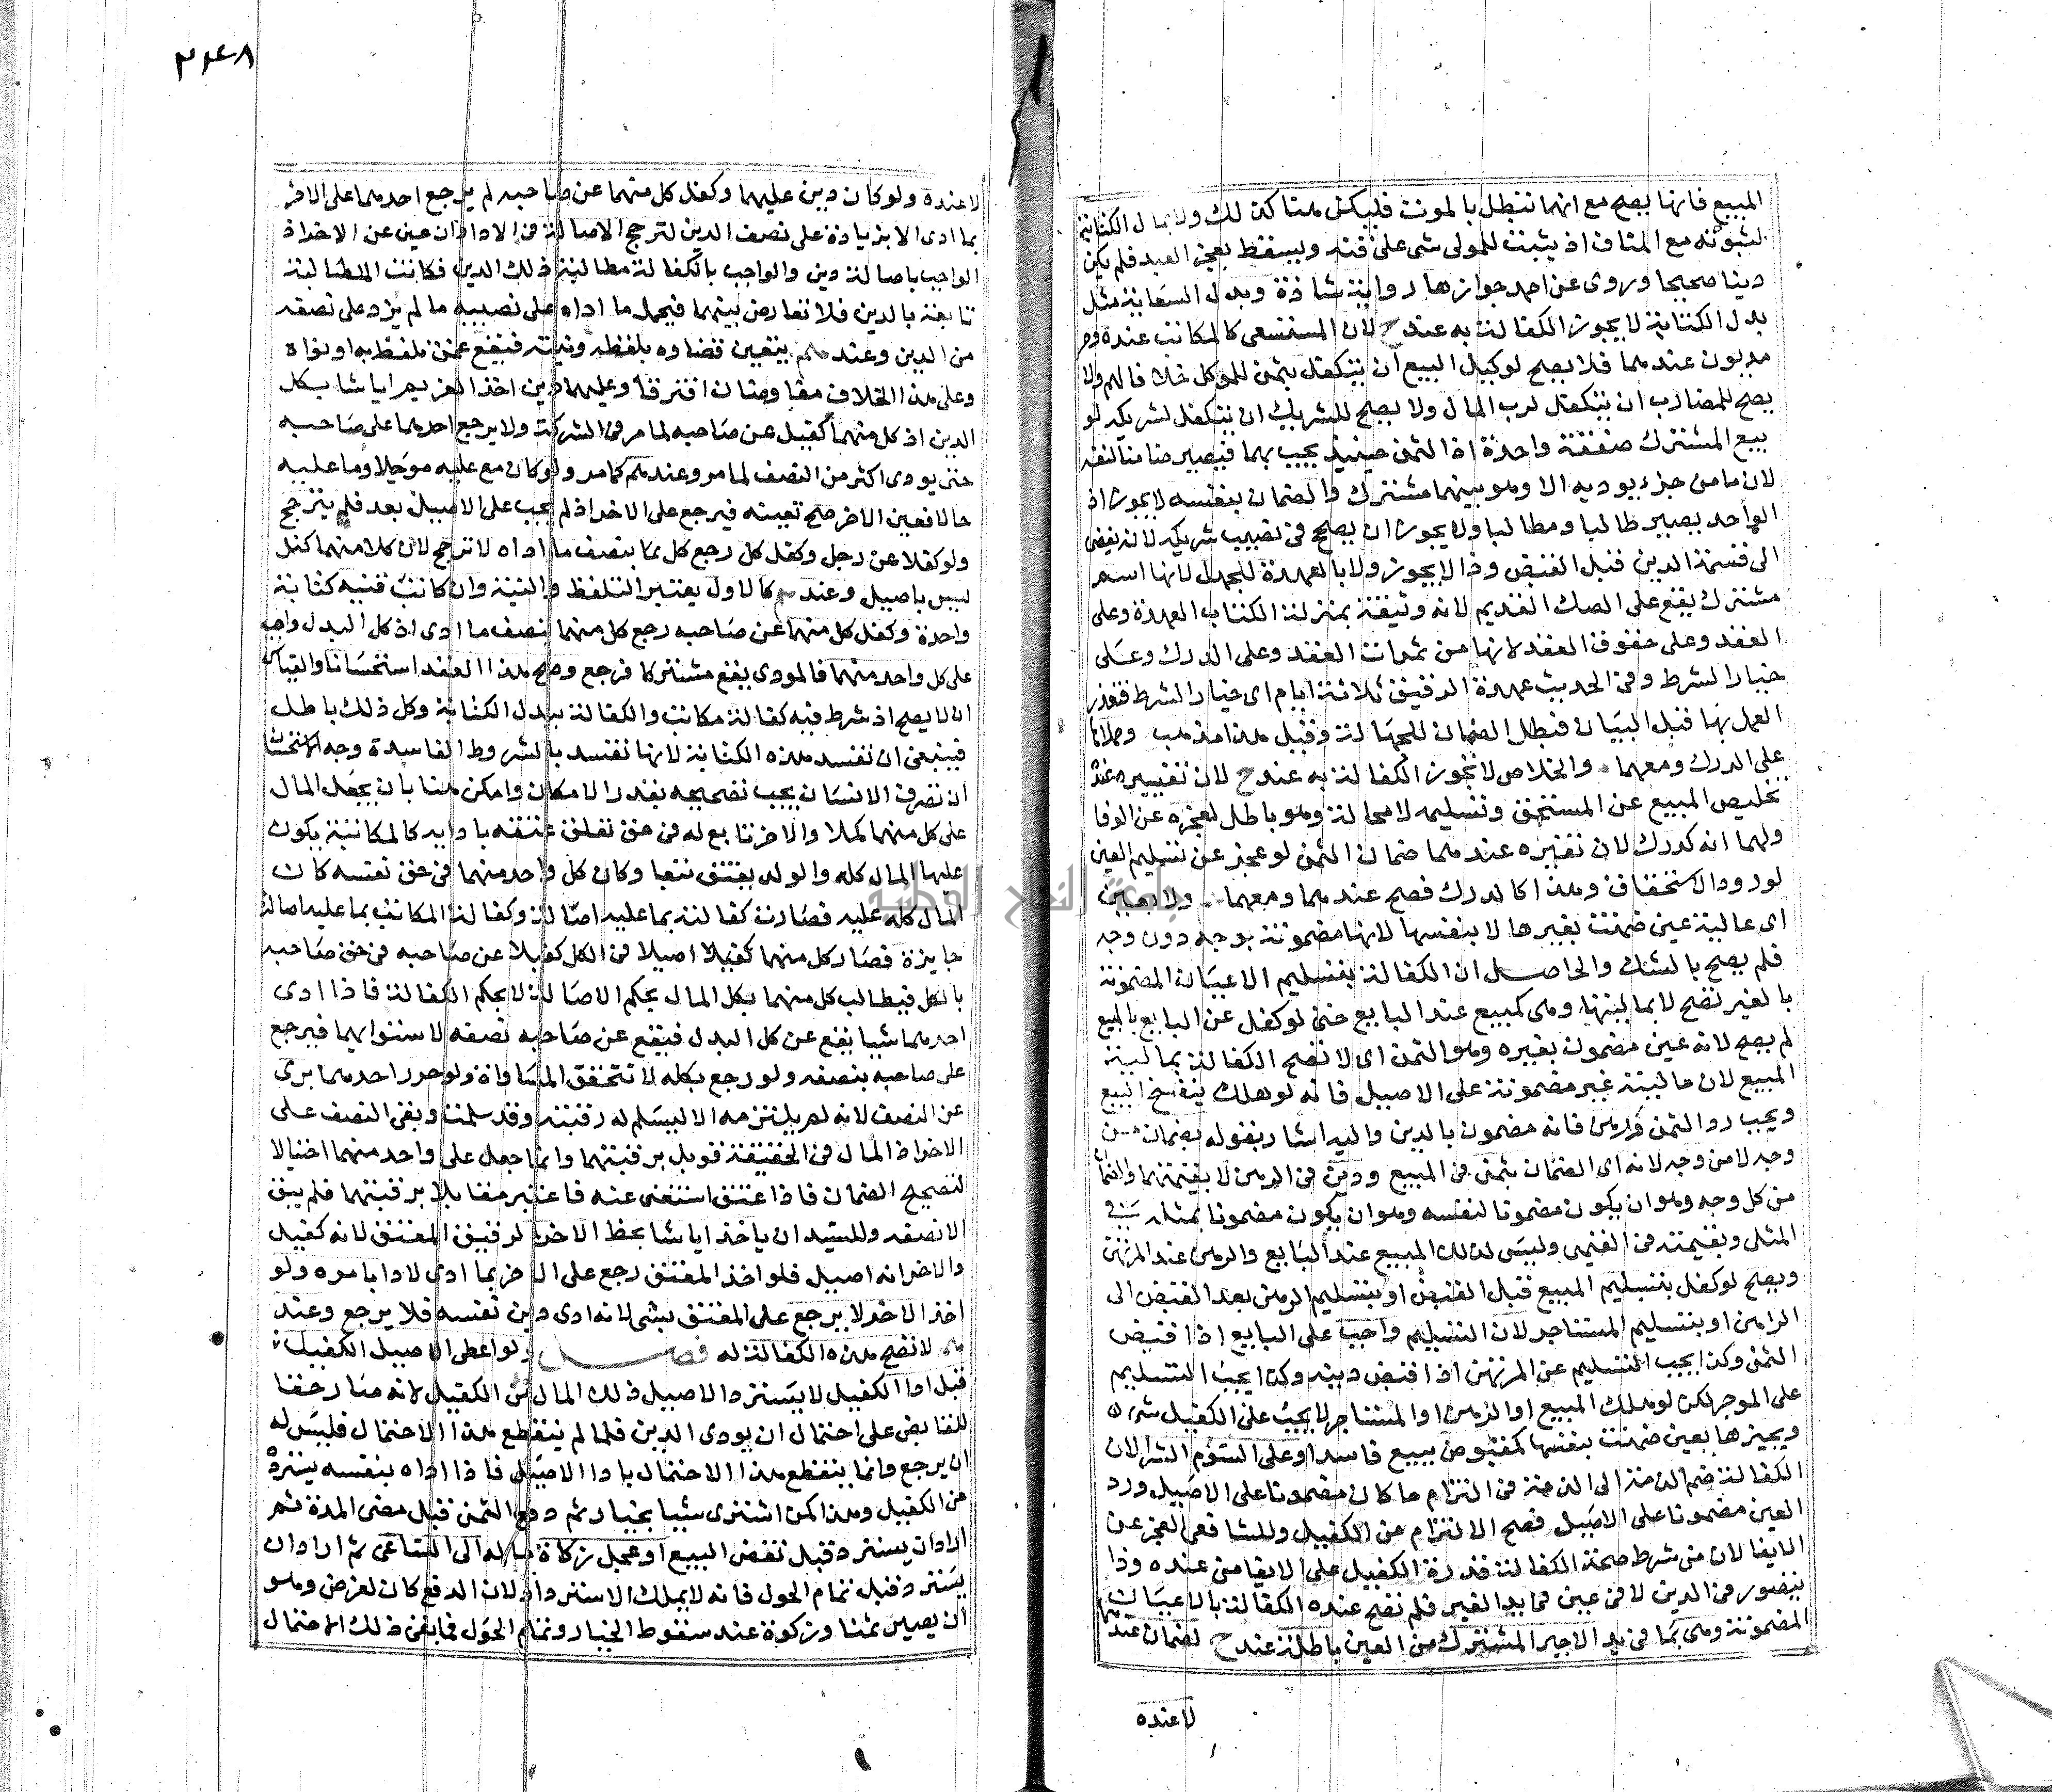 المبيع فانها يصح مع انها تبطل بالموت فليكن هذا كذلك ولا بمال الكتابة
لثبوته مع المناف اذ يثبت للمولى شى على قنه ويسقط بعجز العبد فلم يكن
دينا صحيحا وروى عن احمد جوازها رواية شاذة وبدل السعاية مثل
بدل الكتابة لا يجوز الكفالة به عند ح لان المستسعى كالمكاتب عنده وحر
مديون عندهما فلا يصح لوكيل البيع ان يتكفل بثمن للموكل خلافا لهم ولا
يصح للمضارب ان يتكفل لرب المال ولا يصح للشريك ان يتكفل لشريكه لو
بيع المشترك صفقة واحدة اذ الثمن حينيذ يجب بهما فيصير ضامنا لنفسه
لان ما من جزء يوديه الا وهو بينهما مشترك والضمان بنفسه لا يجوز اذ
الواحد يصير طالبا ومطالبا ولا يجوز ان يصح في نصيب شريكه لانه يفضى
الى قسمة الدين قبل القبض وذا لا يجوز ولا بالعهدة للجهل لانها اسم
مشترك يقع على الصك القديم لانه وثيقة بمنزلة الكتاب العهدة وعلى
العقد وعلى حقوق العقد لانها من ثمرات العقد وعلى الدرك وعلى
خيار الشرط وفى الحديث عهدة الرقيق ثلاثة ايام اى خيار الشرط فتعذر
العمل بها قبل البيان فبطل الضمان للجهالة وقيل هذا مذهب وحملاها
على الدرك ومعهما والخلاص لا تجوز الكفالة به عند ح لان تفسيره عنده
تخليص المبيع عن المستحق وتسليمه لا محالة وهو باطل لعجزه عن الوفا
ولهما انه كدرك لان تفسيره عندهما ضمان الثمن لو عجز عن تسليم العين
لورود الاستحقاق وهذا كالدرك فصح عندهما ومعهما ولا بعين
اى عالية عين ضمنت بغيرها لا بنفسها لانها مضمونة بوجه دون وجه
فلم يصح بالشك والحاصل ان الكفالة بتسليم الاعيان المضمونة
بالغير تصح لا بماليتها وهى كمبيع عند البايع حتى لو كفل عن البايع بالمبيع
لم يصح لانه عين مضمون بغيره وهو الثمن اى لا تصح الكفالة بمالية
المبيع لان ماليته غير مضمونة على الاصيل فانه لو هلك ينفسخ البيع
ويجب رد الثمن كرهن فانه مضمون بالدين واليه اشار بقوله بضمان من
وجه لا من وجه لانه اى الضمان بثمن فى المبيع ودين فى الرهن لا بقيمتهما والضمان
من كل وجه وهو ان يكون مضمونا لنفسه وهو ان يكون مضمونا بمثله في
المثلى وبقيمته فى القيمى وليس كذلك المبيع عند البايع والرهن عند المرتهن
ويصح لو كفل بتسليم المبيع قبل القبض او بتسليم الرهن بعد القبض الى
الراهن او بتسليم المستاجر لان التسليم واجب على البايع اذا قبض
الثمن وكذا يجب التسليم عن المرتهن اذا قبض دينه وكذا يجب التسليم
على الموجر لكن لو هلك المبيع او الرهن او المستاجر لا يجب على الكفيل شىء
ويجيزها بعين ضمنت بنفسها كمقبوض ببيع فاسد او على السوم الشرا لان
الكفالة ضم الذمة الى الذمة فى التزام ما كان مضمونا على الاصيل ورد
العين مضمونا على الاصيل فصح الالتزام من الكفيل وللشافعى العجز عن
الايفا لان من شرط صحة الكفالة قدرة الكفيل على الايفا من عنده وذا
يتصور فى الدين لا فى عين فى يد الغير فلم تصح عنده الكفالة بالاعيان
المضمونة وهى بما فى يد الاجير المشترك من العين باطلة عند ح لضمان عندهما
لا عنده
٢٤٨
لا عنده ولو كان دين عليهما وكفل كل منهما عن صاحبه لم يرجع احدهما على الاخر
بما ادى الا بزيادة على نصف الدين لترجح الاصالة فى الاداء ان عين عن الاخر اذ
الواجب باصالة دين والواجب بالكفالة مطالبة ذلك الدين فكانت المطالبة
تابعة بالدين فلا تعارض بينهما فيحمل ما اداه على نصيبه ما لم يزد على نصفه
من الدين وعندهم يتعين قضاوه بلفظه ونيته فيقع عمن تلفظ به او نواه
وعلى هذا الخلاف مفاوضان افترقا وعليهما دين اخذ الغريم ايا شا بكل
الدين اذ كل منهما كفيل عن صاحبه لما مر فى الشركة ولا يرجع احدهما على صاحبه
حتى يودى اكثر من النصف لما مر وعندهم كما مر ولو كان مع عليه موجلا وما عليه
حالا فعين الاخر صح تعينه فيرجع على الاخر اذ لم يجب على الاصيل بعد فلم يترجح
ولو كفلا عن رجل وكفل كل رجع كل بما بنصف ما اداه لا ترجح لان كلا منهما كفل
ليس باصيل وعندهم كالاول يعتبر التلفظ والنية وان كاتب قنيه كتابة
واحدة وكفل كل منهما عن صاحبه رجع كل منهما بنصف ما ادى اذ كل البدل واجب
على كل واحد منهما فالمودى يقع مشتركا فرجع وصح هذا العقد استحسانا والقياس
ان لا يصح اذ شرط فيه كفالة مكاتب والكفالة ببدل الكتابة وكل ذلك باطل
فينبغى ان تفسد هذه الكتابة لانها تفسد بالشروط الفاسدة وجه الاستحسان
ان تصرف الانسان يجب تصحيحه بقدر الامكان وامكن هنا بان يجعل المال
على كل منهما كملا والاخر تابع له فى حق تعلق عتقه باداه كالمكاتبة يكون
عليها المال كله والولد يعتق تبعا وكان كل واحد منهما فى حق نفسه كان
المال كله عليه فصارت كفالة بما عليه اصالة وكفالة المكاتب بما عليه اصالة
جايزة فصار كل منهما كفيلا اصيلا فى الكل كفيلا عن صاحبه فى حق صاحبه
بالكل فيطالب كل منهما بكل المال بحكم الاصالة لا بحكم الكفالة فاذا ادى
احدهما شيا يقع عن كل البدل فيقع عن صاحبه نصفه لاستوايهما فيرجع
على صاحبه بنصفه ولو رجع بكله لا تتحقق المساواة ولو حرر احدهما برى
عن النصف لانه لم يلتزمه الا ليسلم له رقبته وقد سلمت وبقى النصف على
الاخر اذ المال فى الحقيقة قوبل برقبتهما وانما جعل على واحد منهما احتيالا
لتصحيح الضمان فاذا عتق استغنى عنه فاعتبر مقابلا برقبتهما فلم يبق
الا نصفه وللسيد ان ياخذ ايا شا بحظ الاخر لرقيق المعتق لانه كفيل
والاخر انه اصيل فلو اخذ المعتق رجع على الاخر بما ادى لاداه بامره ولو
اخذ الاخر لا يرجع على المعتق بشى لانه ادى دين نفسه فلا يرجع وعند
هم لا تصح هذه الكفالة له فصل ولو اعطى الاصيل الكفيل
قبل ادا الكفيل لا يسترد الاصيل ذلك المال من الكفيل لانه صار حقا
للقابض على احتمال ان يودى الدين فلما لم ينقطع هذا الاحتمال فليس له
ان يرجع وانما ينقطع هذا الاحتمال باداء الاصيل فاذا اداه بنفسه يسترد
من الكفيل وهذا كمن اشترى شيا بخيار ثم دفع الثمن قبل مضى المدة ثم
اراد ان يسترد قبل نقض البيع او عجل زكاة ماله الى الساعى ثم اراد ان
يسترد قبل تمام الحول فانه لا يملك الاسترداد لان الدفع كان لغرض وهو
ان يصير ثمنا وزكوة عند سقوط الخيار وتمام الحول فما بقى ذلك الاحتمال
جامعة النجاح الوطنية